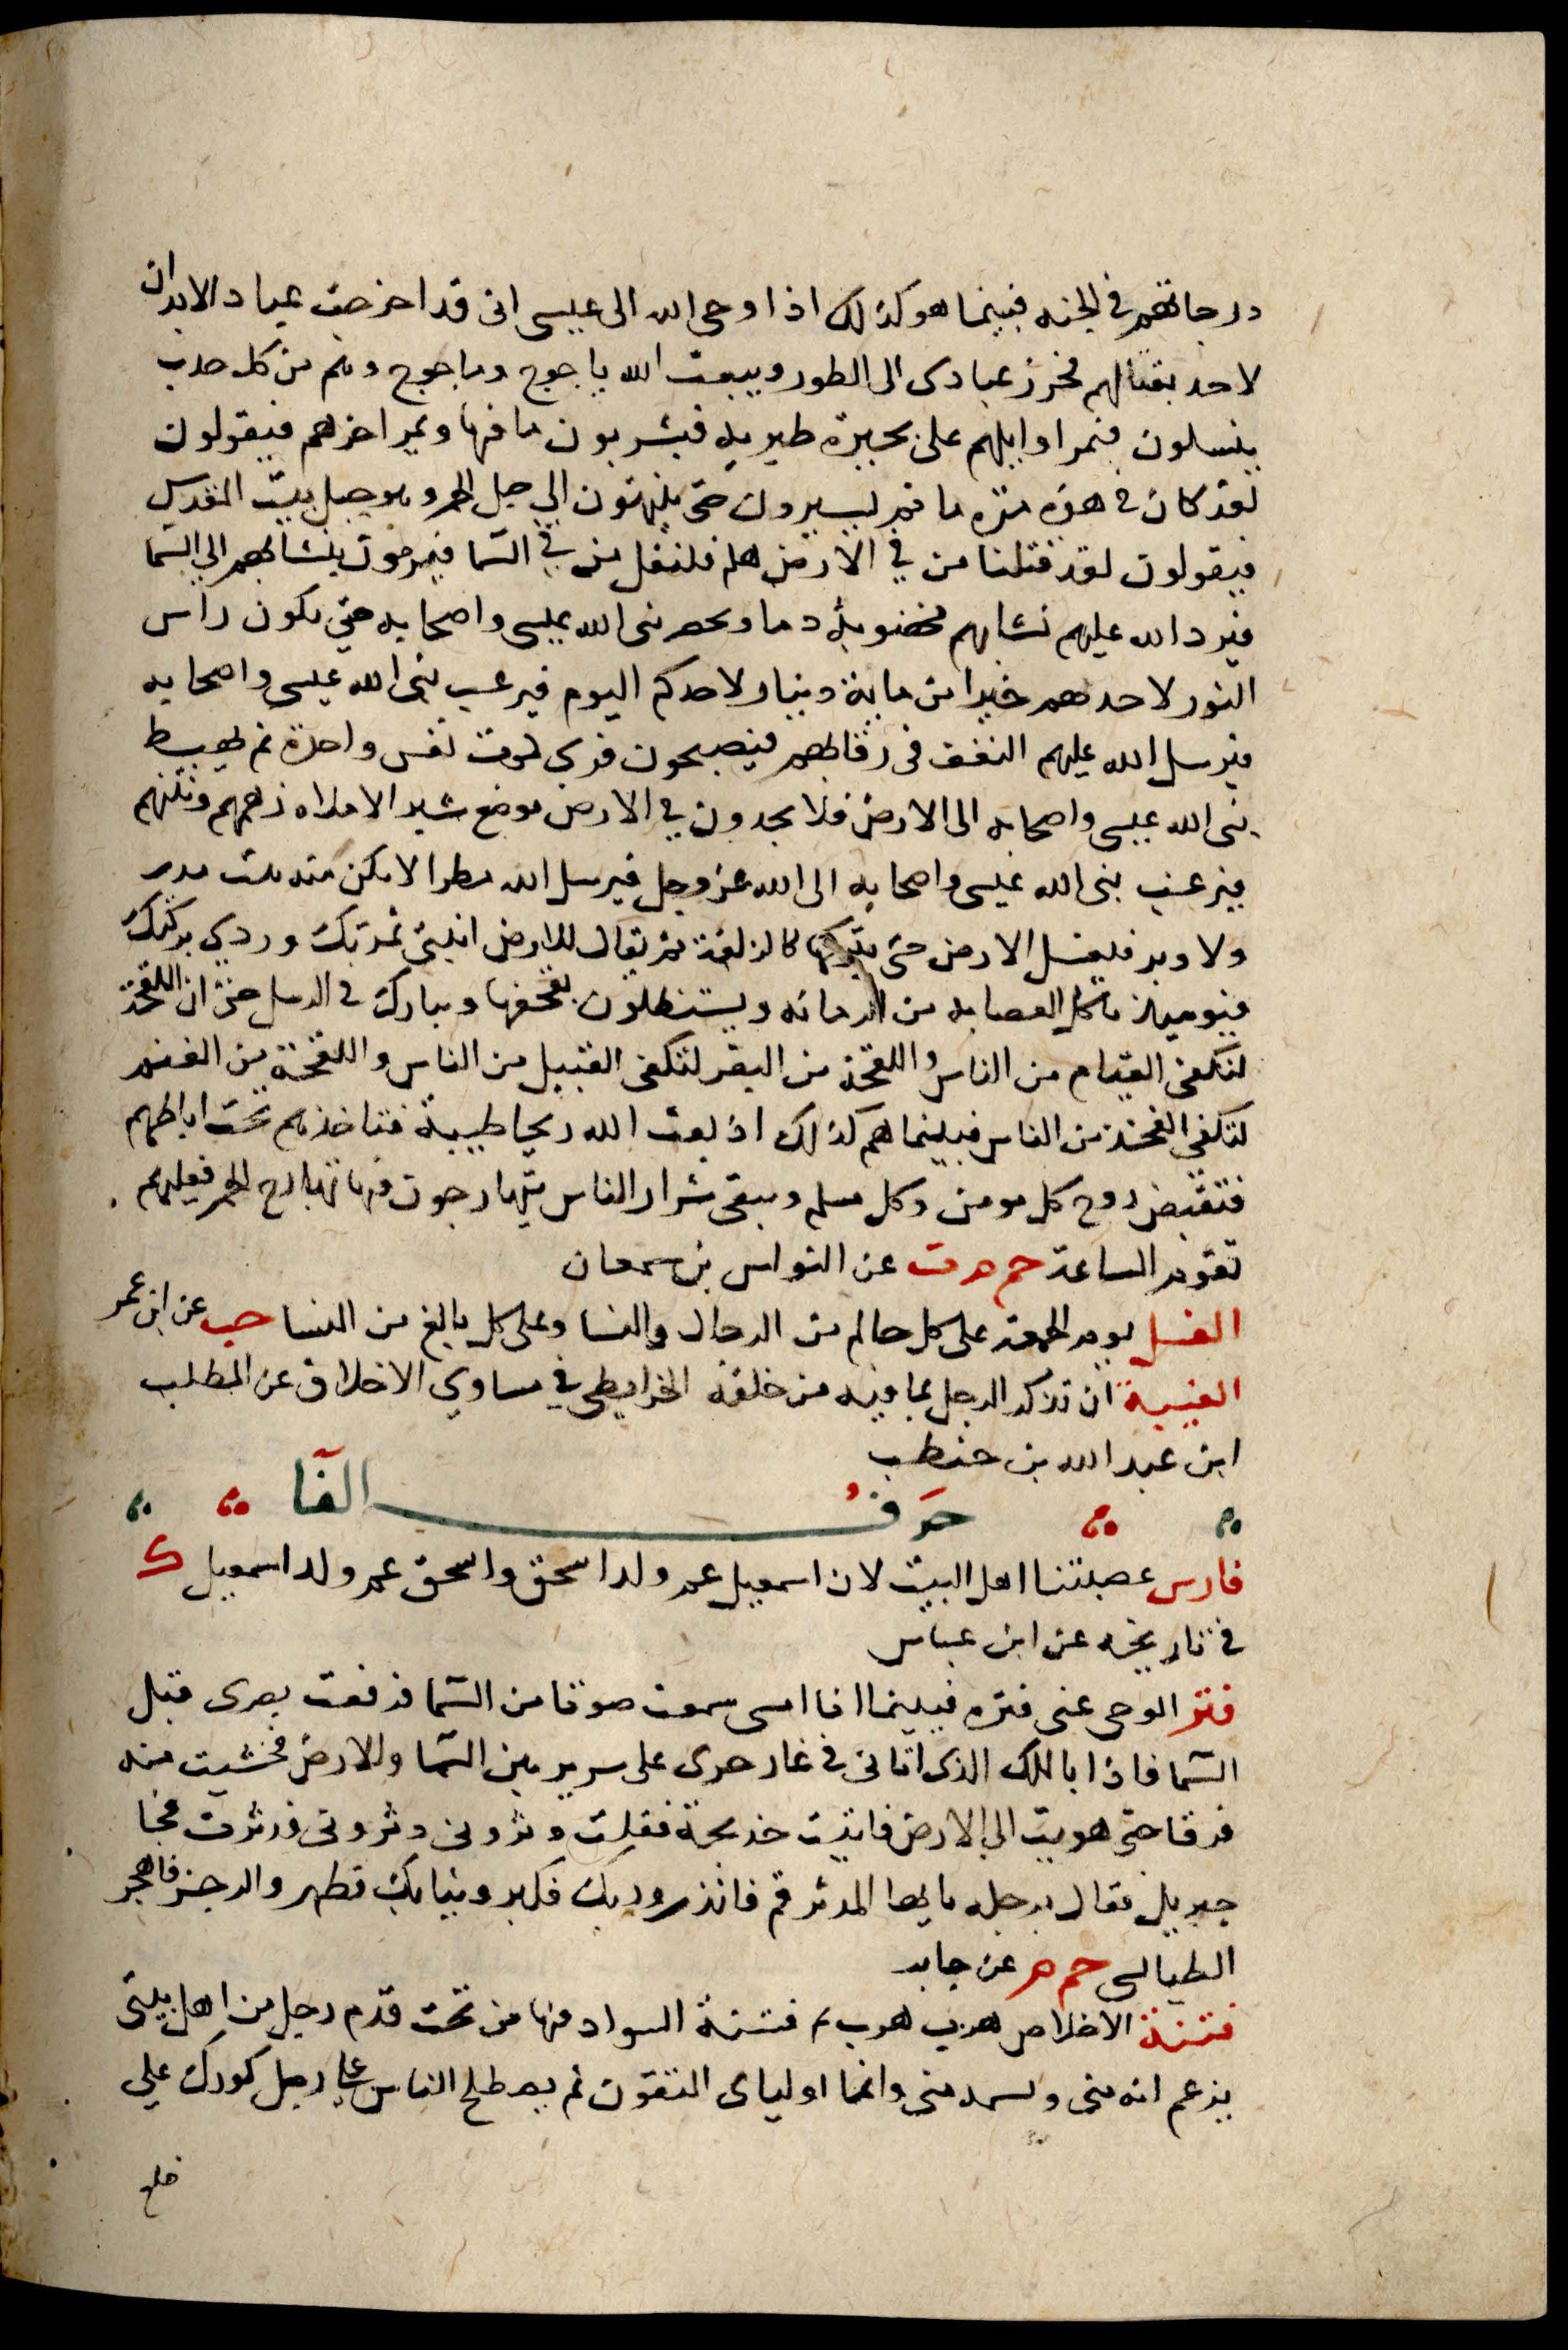 درجاتهم في الجنه فبينما هو كذلك اذا وحى الله الى عيسى انى قد اخرجت عبادا لا يدان
لاحد بقتالهم فحرز عبادى الى الطور ويبعث الله ياجوج وماجوج وهم من كل حدب
ينسلون فيمر اوايلهم على بحيرة طبريه فيشربون ما فيها ويمر اخرهم فيقولون
لقد كان في هذه مره ما ثم يسيرون حتى ينتهون الى جبل الخمر وهو جبل بيت المقدس
فيقولون لقد قتلنا من في الارض هلم فلنقتل من في السما فيرمون بنشابهم الى السما
فيرد الله عليهم نشابهم مخضوبة دما ويحصر نبى الله عيسى واصحابه حتى يكون راس
الثور لاحدهم خيرا من ماية دينار لاحدكم اليوم فيرغب نبى الله عيسى واصحابه
فيرسل الله عليهم النغف فى رقابهم فيصبحون فرسى كموت نفس واحدة ثم يهبط
نبى الله عيسى واصحابه الى الارض فلا يجدون في الارض موضع شبر الا ملاه زهمهم ونتنهم
فيرغب نبى الله عيسى واصحابه الى الله عز وجل فيرسل الله مطرا لا يكن منه بيت مدر
ولا وبر فيغسل الارض حتى يتركها كالزلفة ثم يقال للارض انبتى ثمرتك وردي بركتك
فيوميذ تاكل العصابه من الرمانه ويستظلون بقحفها ويبارك في الرسل حتى ان اللقحة
لتكفى الفيام من الناس واللقحة من البقر لتكفى القبيل من الناس واللقحة من الغنم
لتكفى الفخذ من الناس فبينما هم كذلك اذ بعث الله ريحا طيبة فتاخذهم تحت اباطهم
فتقبض روح كل مومن وكل مسلم ويبقى شرار الناس يتهارجون فيها تهارج الحمر فعليهم
تقوم الساعة حم م ت عن النواس بن سمعان
الغسل يوم الجمعة على كل حالم من الرجال والنسا وعلى كل بالغ من النسا حب عن ابن عمر
الغيبة ان تذكر الرجل بما فيه من خلفه الخرايطى في مساوي الاخلاق عن المطلب
ابن عبد الله بن حنطب
حرف الفا
فارس عصبتنا اهل البيت لان اسمعيل عم ولد اسحق واسحق عم ولد اسمعيل ك
في تاريخه عن ابن عباس
فتر الوحى عنى فتره فبينما انا امسى سمعت صوتا من السما فرفعت بصرى قبل
السما فاذا بالملك الذى اتانى في غار حرى على سرير بين السما والارض فخشيت منه
فرقا حتى هويت الى الارض فاتيت خديجة فقلت دثرونى دثرونى فدثرت فجا
جبريل فقال برجله يايها المدثر قم فانذر وربك فكبر وثيابك فطهر والرجز فاهجر
الطيالسى حم م عن جابر
فتنة الاخلاس هرب هرب ثم فتنة السواد منها من تحت قدم رجل من اهل بيتى
يزعم انه منى وليس منى وانما اولياى المتقون ثم يصطلح الناس على رجل كورك على
ضلع